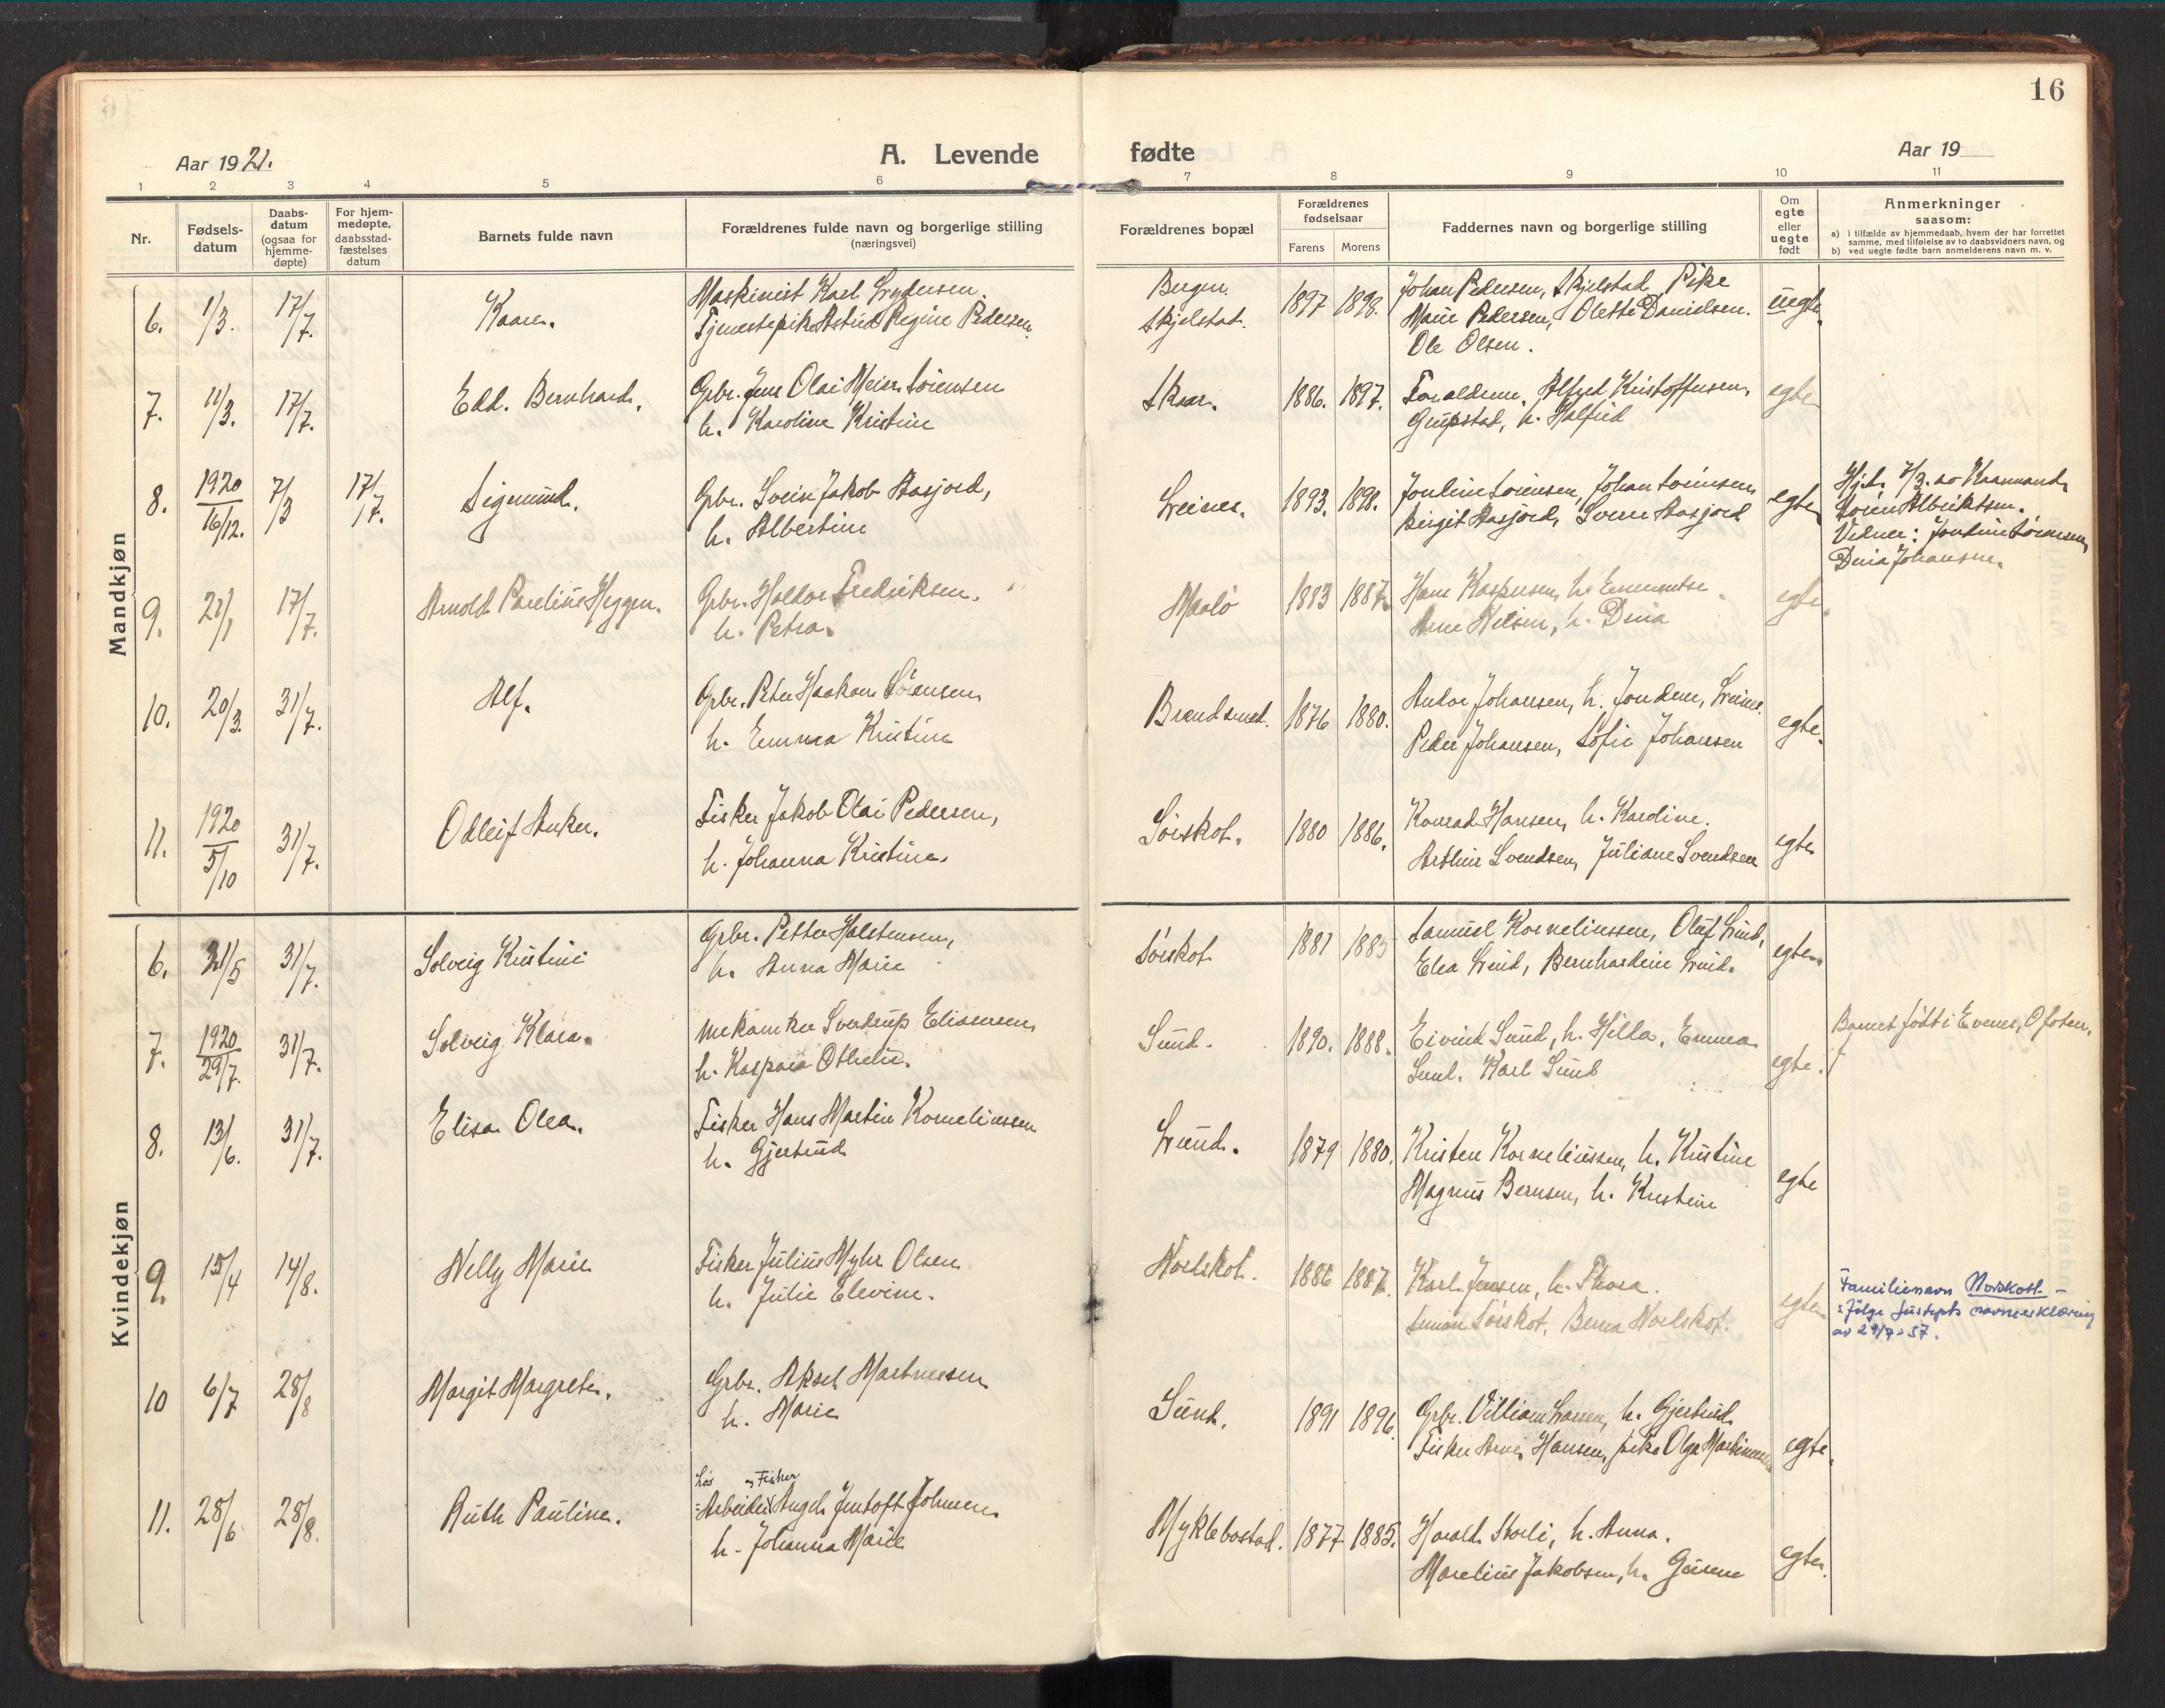 16
Aar 1921.
A. Levende fødte
Aar 19
1 2 3 4 5 6 7 8 9 10 11
Nr.
Fødsels-
datum
Daabs-
datum
(ogsaa for
hjemme-
døpte)
For hjem-
medøpte,
daabsstad-
fæstelses
datum
Barnets fulde navn
Forældrenes fulde navn og borgerlige stilling
(næringsvei)
Forældrenes bopæl
Forældrenes
fødselsaar
Farens Morens
Faddernes navn og borgerlige stilling
Om
egte
eller
uegte
født
Anmerkninger
saasom:
a) i tilfælde av hjemmedaab, hvem der har forrettet
samme, med tilføielse av to daabsvidners navn, og
b) ved uegte fødte barn anmelderens navn m. v.
Mandkjøn
6. 1/3. 17/7. Kaare. Maskinist Karl
Tjenestepike Astrid Regine Pedersen.
Bergen.
Skjelstad. 1897 1898. Johan Pedersen, Skjelstad, Pike
Marie Pedersen, Olette Danielsen.
Ole Olsen.
uegte
7. 11/3. 17/7. Edd. Bernhard. Gbr. Jens Olai Meier Sörensen
h. Karoline Kristine
Skaar. 1886. 1897. Foraldrene, Alfred Kristoffersen,
h. Halfrid
egte
8. 1920 16/12. 7/3 17/7. Sigmund. Gbr. Svein Jakob Aasjord,
h. Albertine
Leines. 1893. 1898. Jentine Sörensen, Johan Sörensen
Birgit Aasjord, Sverre Aasjord
egte
Hjd. 7/3. av
Sören Albriktsen.
Vidner: Jentine Sörensen
Dina Johansen.
9. 21/1 17/7. Arnold Parelius Heggen. Gbr. Haldor Fredriksen.
h. Petra.
Maalö 1883 1887. Hans Kaspersen, h.
Arne Nilsen, h. Dina
egte.
10. 20/3. 31/7. Alf. Gbr. Peter Haakon Sörensen
h. Emma Kristine
1876 1880. Andor Johansen, h.
Peder Johansen, Sofie Johansen
egte.
11. 1920 5/10 31/7. Odleif Anker. Fisker Jakob Olai Pedersen,
h. Johanna Kristine.
Sörskot. 1880 1886. Konrad Hansen, h. Karoline.
Arthur Svendsen, Juliane Svendsen
egte
Kvindekjøn
6. 31/5 31/7. Solveig Kristine Gbr. Petter Halstensen,
h. Anna Marie
Sörskot 1881 1885 Samuel Korneliussen, Oluf
Elea Bernhardine
egte.
7. 1920 29/7. 31/7. Solveig Klara. Mekaniker Sverdrup Eliassen
h. Kaspara Othelie.
Sund. 1890. 1888. Eivind Sund, h. Hilda, Emma
Sund. Karl Sund
egte.
Barnet født i Evenes, Ofoten.
8. 13/6. 31/7. Elisa Olea. Fisker Hans Martin Korneliussen
h. Gjertrud
1879 1880. Kristen Korneliussen, h. Kristine
Magnus Bernsen, h. Kristine
egte
9. 15/4 14/8. Nelly Marie Fisker Julius Myhr Olsen
h. Julie Elevine.
Nordskot. 1886 1887. Karl Jensen, h. Thora.
Simon Sörskot, Berna Nordskot.
egte
Familienavn Nordskott -
ifølge Justdepts navneerklæring
av 29/7-57.
10 6/7 28/8 Margit Margrete. Gbr. Aksel Martinussen
h. Marie
Sund. 1891 1896. Gbr. Villiam Larsen, h. Gjertrud.
Fisker Arne Hansen, pike Olga Martinussen
egte.
11. 28/6 28/8. Ruth Pauline. Løs og Fisker
Arbeider Angel Jentoft Johnsen
h. Johanna Marie
Myklebostad. 1877 1885. Harald Skarli, h. Anna.
Marelius Jakobsen, h.
egte.